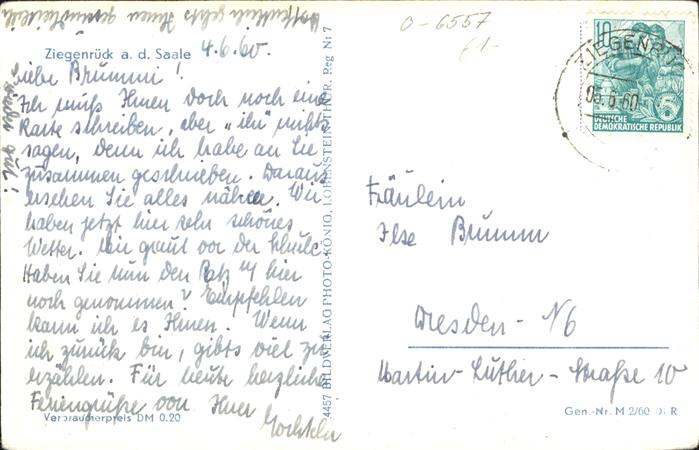 Hoffentlich gehts Ihnen gesundheitlich
wieder gut!
O-6557
61-
Ziegenrück a. d. Saale 4.6.60.
Liebe Brummi!
Ich muß Ihnen doch noch eine
Karte schreiben, aber „ihr" nichts
sagen, denn ich habe an Sie
zusammen geschrieben. Daraus
ersehen Sie alles nähere. Wir
haben jetzt hier sehr schönes
Wetter. Mir graut vor der Schule.
Haben Sie nun den Platz hier
noch genommen? Empfehlen
kann ich es Ihnen. Wenn
ich zurück bin, gibts viel zu
erzählen. Für heute herzliche
Feriengrüße von Ihrer
Verbraucherpreis DM 0.20
4457 BILDVERLAG PHOTO-KÖNIG, LOBENSTEIN-THÜR. Reg Nr 7
10
5
DEUTSCHE
DEMOKRATISCHE REPUBLIK
ZIEGENRÜCK
05.6.60
Fräulein
Ilse Brumm
Dresden - N6
Martin-Luther-Straße 10
Gen.-Nr. M 2/60 DDR